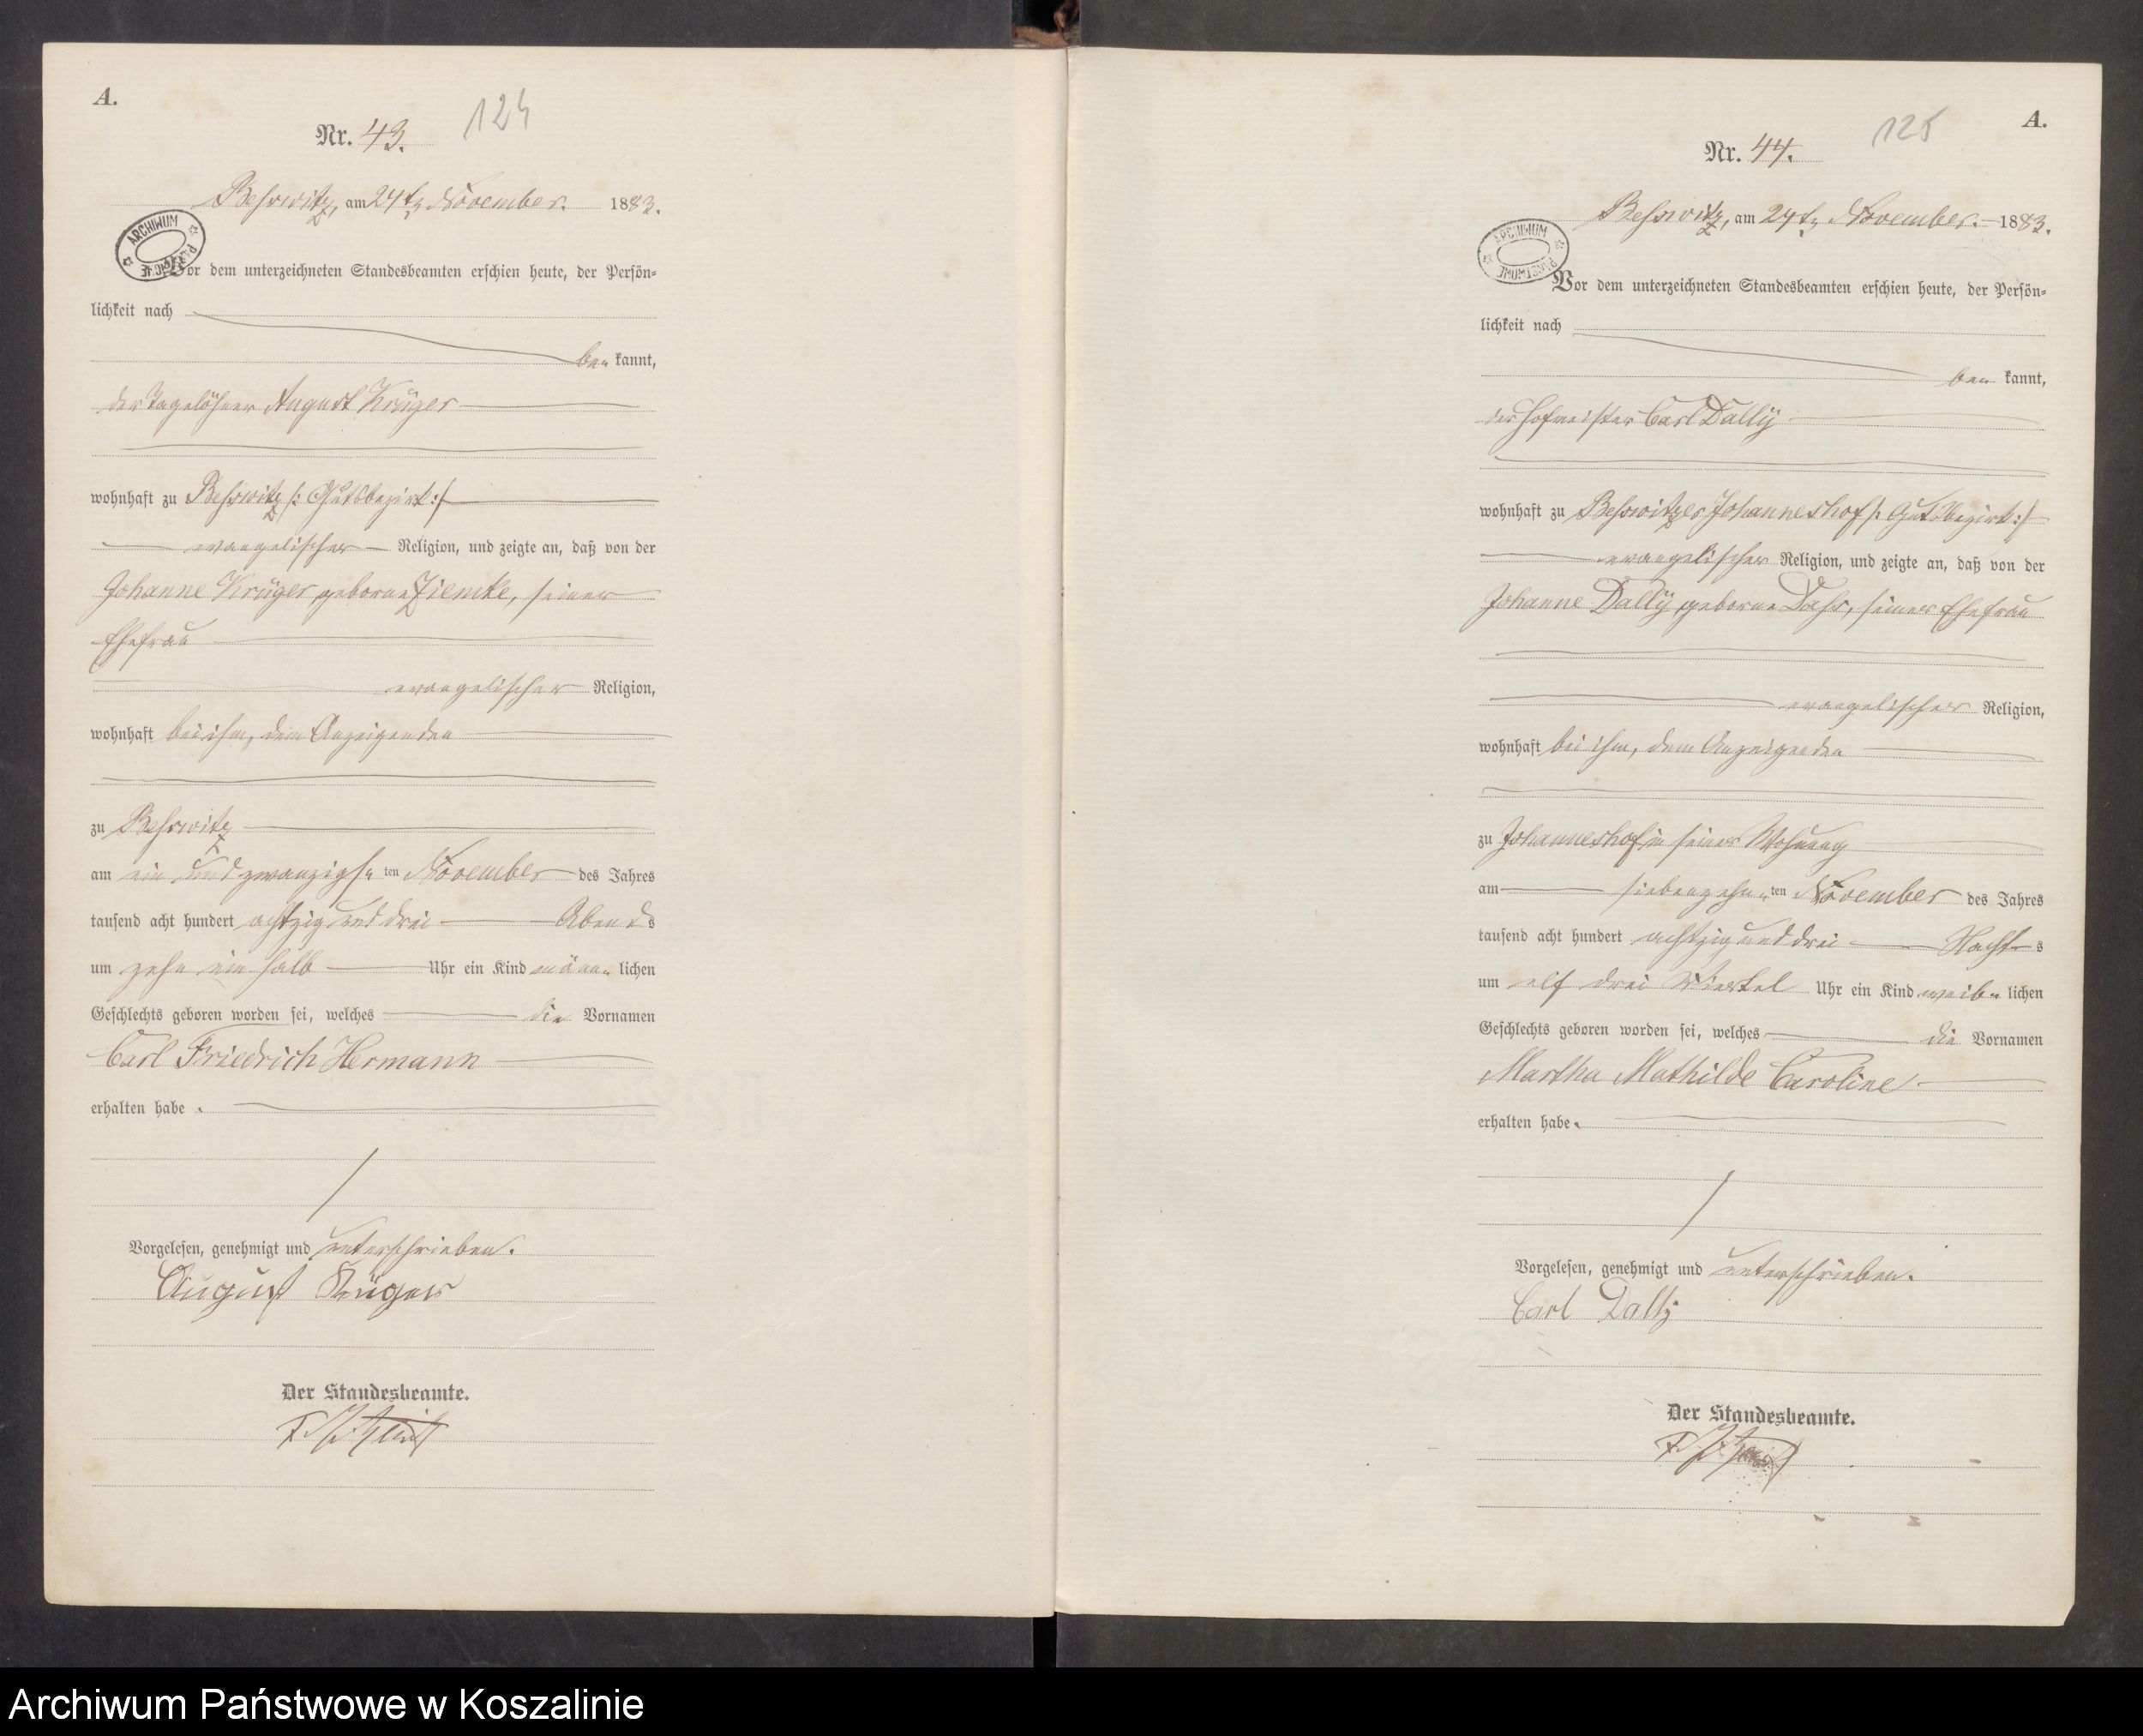 A.
Nr. 43.
124
Beßwitz, am 24ten November. 1883.
ARCHIWUM
Vor dem unterzeichneten Standesbeamten erschien heute, der Persön-
lichkeit nach
be kannt,
der Tagelöhner August Krüger
wohnhaft zu Beßwitz /: Gutsbezirk :/
evangelischer Religion, und zeigte an, daß von der
Johanne Krüger geborne Ziemke, seiner
Ehefrau
evangelischer Religion,
wohnhaft bei ihm, dem Anzeigenden
zu Beßwitz
am ein und zwanzigsten November des Jahres
tausend acht hundert achtzig und drei Abends
um zehn ein halb Uhr ein Kind männlichen
Geschlechts geboren worden sei, welches die Vornamen
Carl Friedrich Hermann
erhalten habe.
Vorgelesen, genehmigt und unterschrieben.
August Krüger
Der Standesbeamte.
A.
Nr. 44.
125
Beßwitz, am 24ten November. 1883.
ARCHIWUM PAŃSTWOWE
Vor dem unterzeichneten Standesbeamten erschien heute, der Persön-
lichkeit nach
be kannt,
der Hofmeister Carl Dally
wohnhaft zu Beßwitzer Johanneshof /: Gutsbezirk :/
evangelischer Religion, und zeigte an, daß von der
Johanne Dally geborne Dahs, seiner Ehefrau
evangelischer Religion,
wohnhaft bei ihm, dem Anzeigenden
zu Johanneshof in seiner Wohnung
am siebenzehnten November des Jahres
tausend acht hundert achtzig und drei Nachts
um elf drei Viertel Uhr ein Kind weiblichen
Geschlechts geboren worden sei, welches die Vornamen
Martha Mathilde Caroline
erhalten habe.
Vorgelesen, genehmigt und unterschrieben.
Carl Dally
Der Standesbeamte.
Archiwum Państwowe w Koszalinie